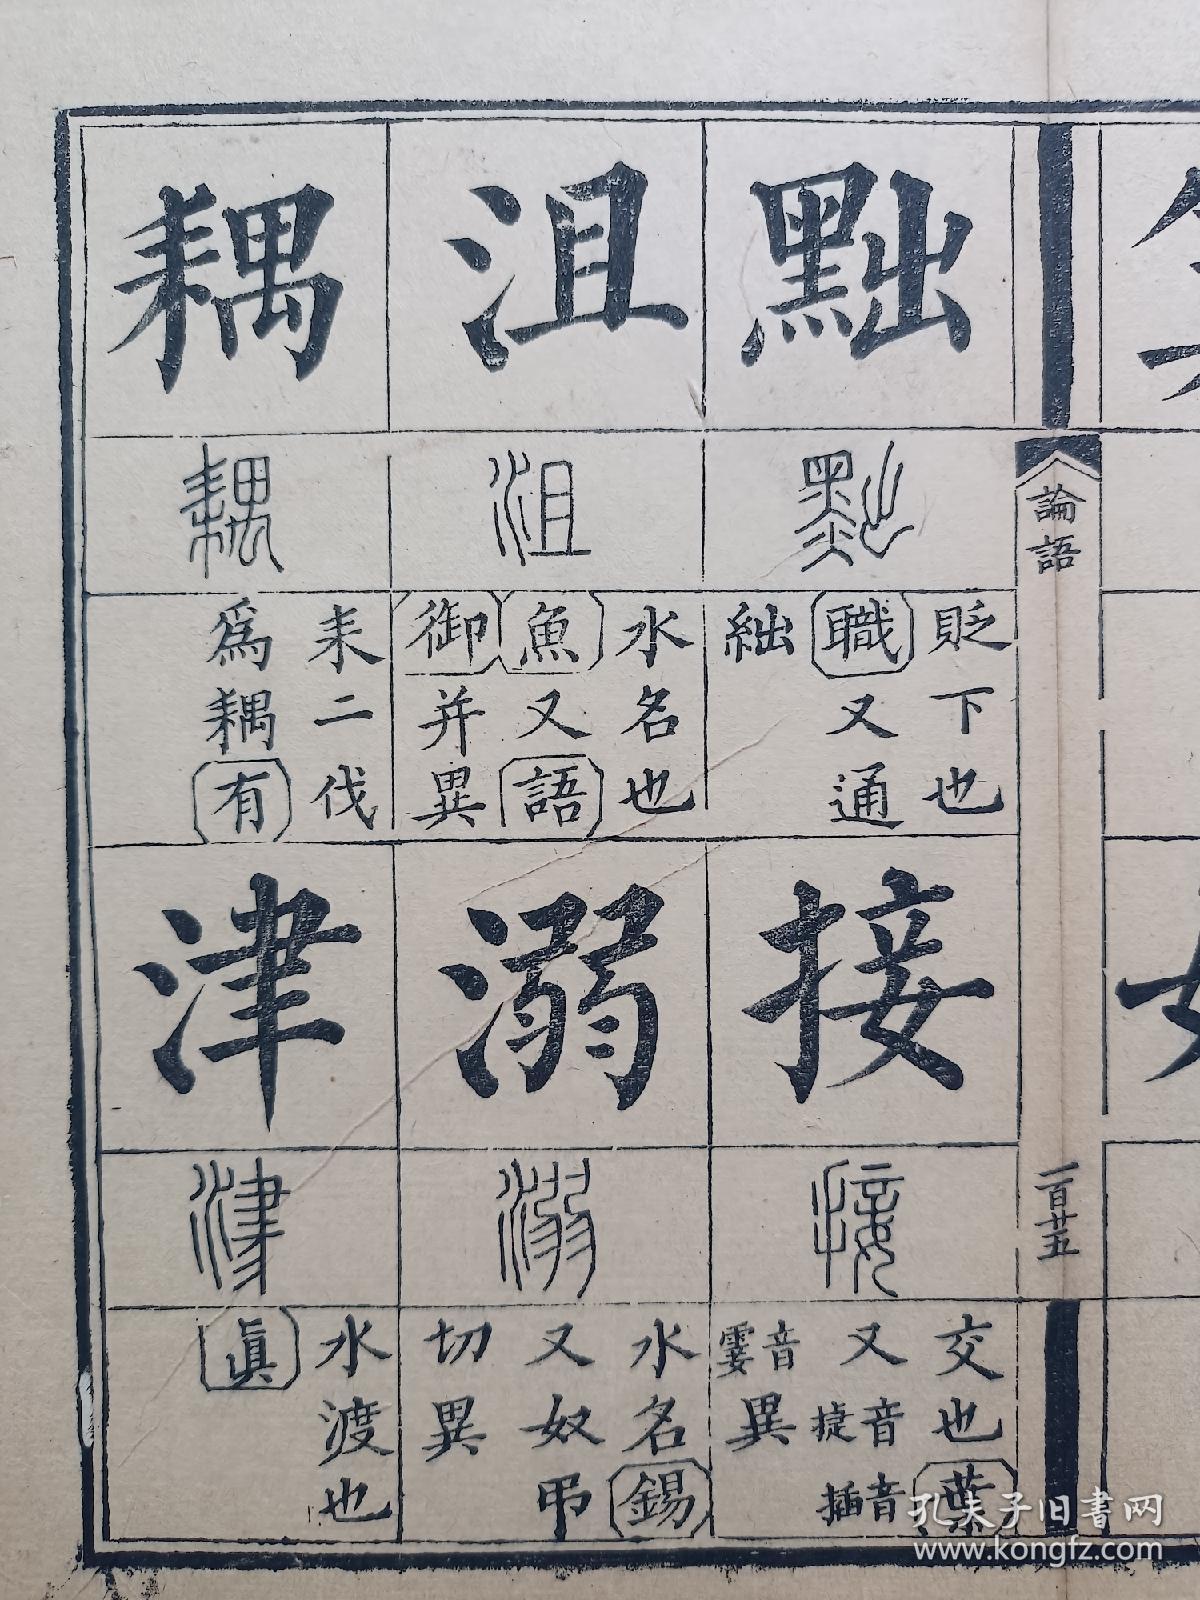 論語
一百廿五
黜
黜
貶下也
職又通
絀
接
接
交也葉
又音捷音插
音霎異
沮
沮
水名也
魚又語
御并異
溺
溺
水名錫
又奴弔
切異
耦
耦
耒二伐
爲耦有
津
津
水渡也
眞
孔夫子旧書网
www.kongfz.com